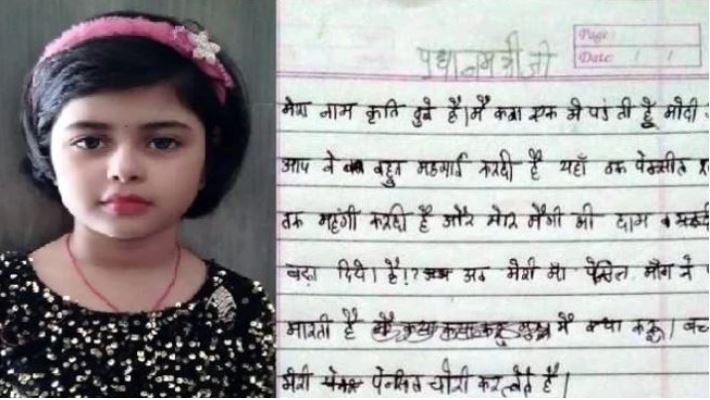 Page:
Date: / /
प्रधानमंत्री जी
मेरा नाम कृति दुबे है। मै कक्षा एक मे पढ़ती हूँ मोदी
आप ने बहुत महगाई करदी है यहाँ तक पेन्सील
तक महंगी करदी है और मेरे मैगी की दाम
बढ़ा दिये। है!? अब मेरी माँ पेन्सिल माँग ने
मारती है मै क्या करू।
मेरी पेन्सिल चोरी कर लेते है।